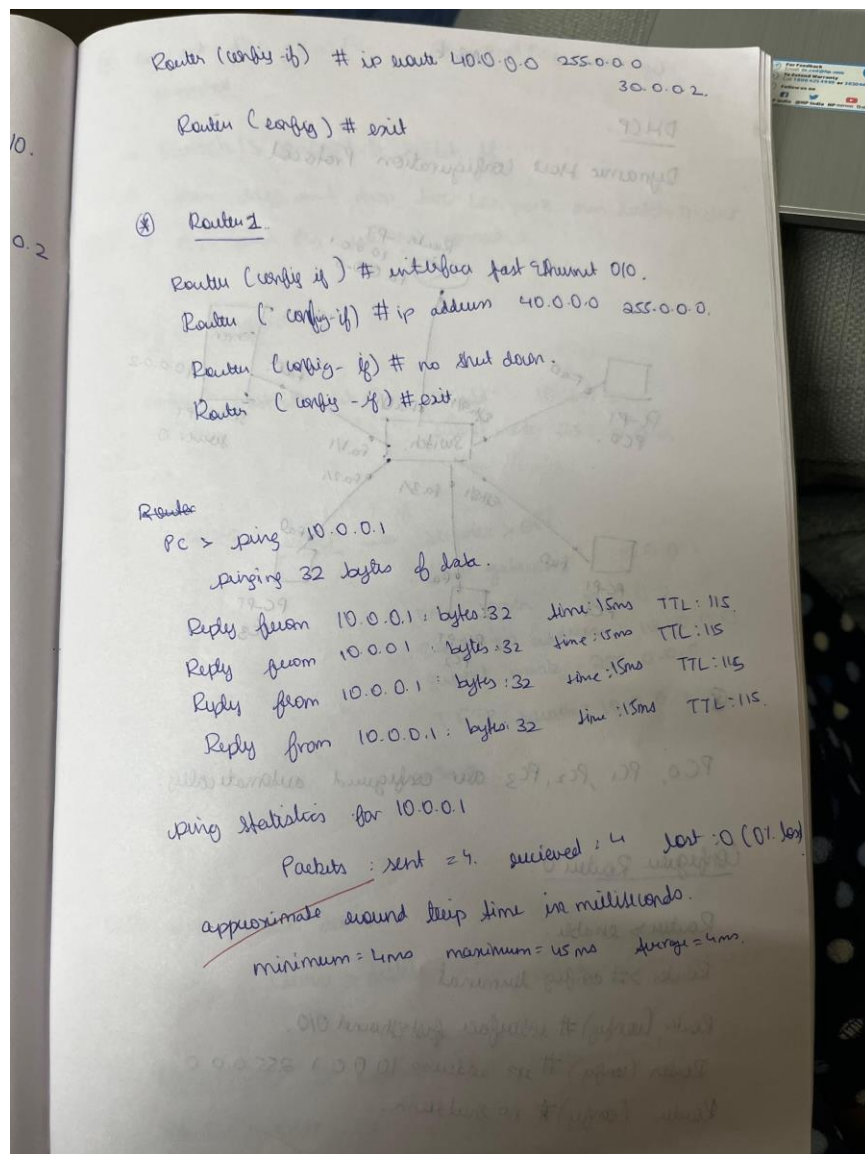 Router (config-if) # ip route 40.0.0.0 255.0.0.0
30.0.02.
Router (config) # exit
10.
0.2
* Router 1
Router (config if) # interface fast Ethernet 0/0.
Router (config-if) # ip address 40.0.0.0 255.0.0.0.
Router (config-if) # no shut down.
Router (config-if) # exit
Router
PC > ping 10.0.0.1
pinging 32 bytes of data.
Reply from 10.0.0.1 : bytes:32 time:15ms TTL:115
Reply from 10.0.01 : bytes:32 time:15ms TTL:115
Reply from 10.0.0.1 : bytes:32 time:15ms TTL:115
Reply from 10.0.0.1 : bytes:32 time:15ms TTL:115.
ping statistics for 10.0.0.1
Packets : sent = 4. recieved : 4 lost :0 (0% loss)
approximate round trip time in milliseconds.
minimum = 4ms maximum = 45ms Average = 4ms.
For Feedback
To Extend Warranty
Follow us on